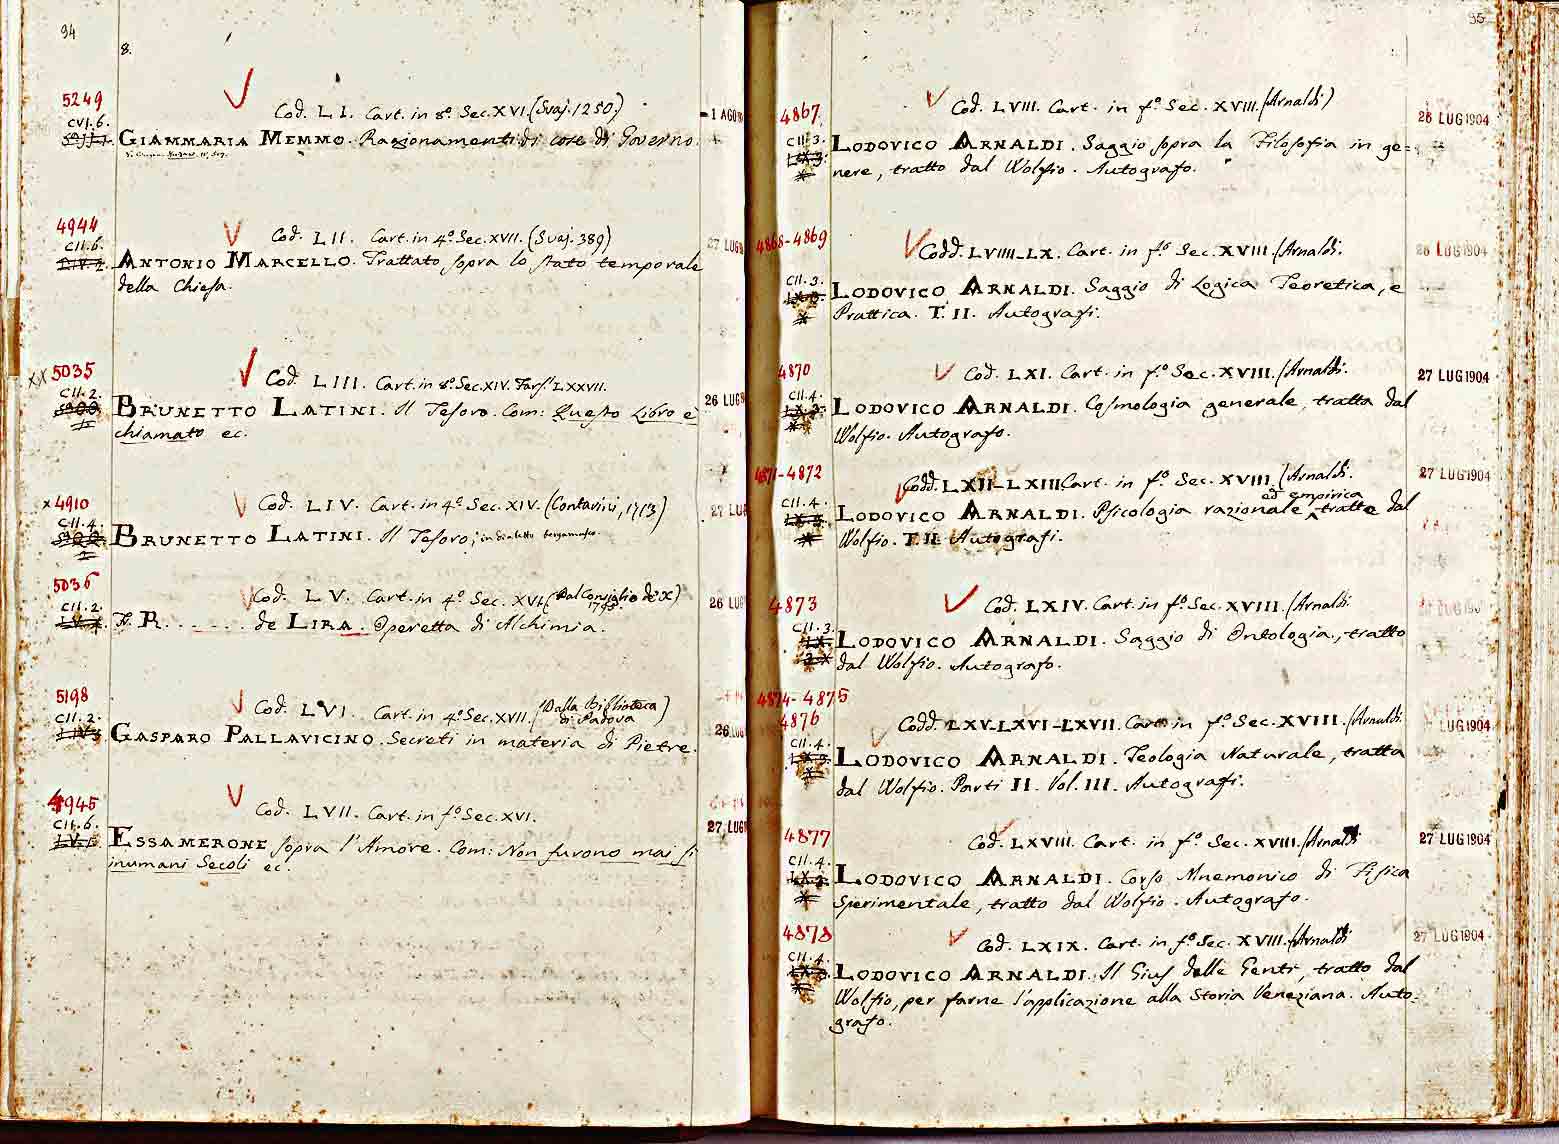 94
8.
5249
CVI.6.
Cod. LI. Cart. in 8º. Sec. XVI. (Svaj. 1250.)
1 AGO
GIAMMARIA MEMMO. Ragionamenti di cose di Governo.
4944
CII.6.
Cod. LII. Cart. in 4º. Sec. XVII. (Svaj. 389)
27 LUG
ANTONIO MARCELLO. Trattato sopra lo stato temporale
della Chiesa.
XX 5035
CII.2.
Cod. LIII. Cart. in 8º. Sec. XIV. Fars. LXXVII.
26 LUG
BRUNETTO LATINI. Il Tesoro. Com: Questo Libro è
chiamato ec.
x 4910
CII.4.
Cod. LIV. Cart. in 4º. Sec. XIV. (Contarini, 1713)
27 LUG
BRUNETTO LATINI. Il Tesoro; in dialetto bergamasco.
5036
CII.2.
Cod. LV. Cart. in 4º. Sec. XVI. (Dal Consiglio de' X)
1795.
26 LUG
R. . . . . . de LIRA. Operetta di Alchimia.
5198
CII.2.
Cod. LVI. Cart. in 4º. Sec. XVII. (Dalla Biblioteca
di Padova)
26 LUG
GASPARO PALLAVICINO. Secreti in materia di Pietre.
4945
CII.6.
Cod. LVII. Cart. in fº. Sec. XVI.
27 LUG
ESSAMERONE sopra l'Amore. Com: Non furono mai sì
inumani Secoli ec.
95
4867.
CII.3.
Cod. LVIII. Cart. in fº. Sec. XVIII. (Arnaldi)
28 LUG 1904
LODOVICO ARNALDI. Saggio sopra la Filosofia in ge=
nere, tratto dal Wolfio. Autografo.
4868-4869
CII.3.
Codd. LVIIII-LX. Cart. in fº. Sec. XVIII. (Arnaldi.
28 LUG 1904
LODOVICO ARNALDI. Saggio di Logica Teoretica, e
Prattica. T. II. Autografi.
4870
CII.4.
Cod. LXI. Cart. in fº. Sec. XVIII. (Arnaldi.
27 LUG 1904
LODOVICO ARNALDI. Cosmologia generale, tratta dal
Wolfio. Autografo.
4871-4872
CII.4.
Codd. LXII-LXIII. Cart. in fº. Sec. XVIII. (Arnaldi.
27 LUG 1904
LODOVICO ARNALDI. Psicologia razionale ed empirica tratte dal
Wolfio. T. II. Autografi.
4873
CII.3.
Cod. LXIV. Cart. in fº. Sec. XVIII. (Arnaldi.
LODOVICO ARNALDI. Saggio di Ontologia, tratto
dal Wolfio. Autografo.
4874-4875
4876
CII.4.
Codd. LXV-LXVI-LXVII. Cart. in fº. Sec. XVIII. (Arnaldi.
LUG 1904
LODOVICO ARNALDI. Teologia Naturale, tratta
dal Wolfio. Parti II. Vol. III. Autografi.
4877
CII.4.
Cod. LXVIII. Cart. in fº. Sec. XVIII. (Arnaldi
27 LUG 1904
LODOVICO ARNALDI. Corso Mnemonico di Fisica
Sperimentale, tratto dal Wolfio. Autografo.
4878
CII.4.
Cod. LXIX. Cart. in fº. Sec. XVIII. (Arnaldi
27 LUG 1904
LODOVICO ARNALDI. Il Gius delle Genti, tratto dal
Wolfio, per farne l'applicazione alla Storia Veneziana. Auto=
grafo.